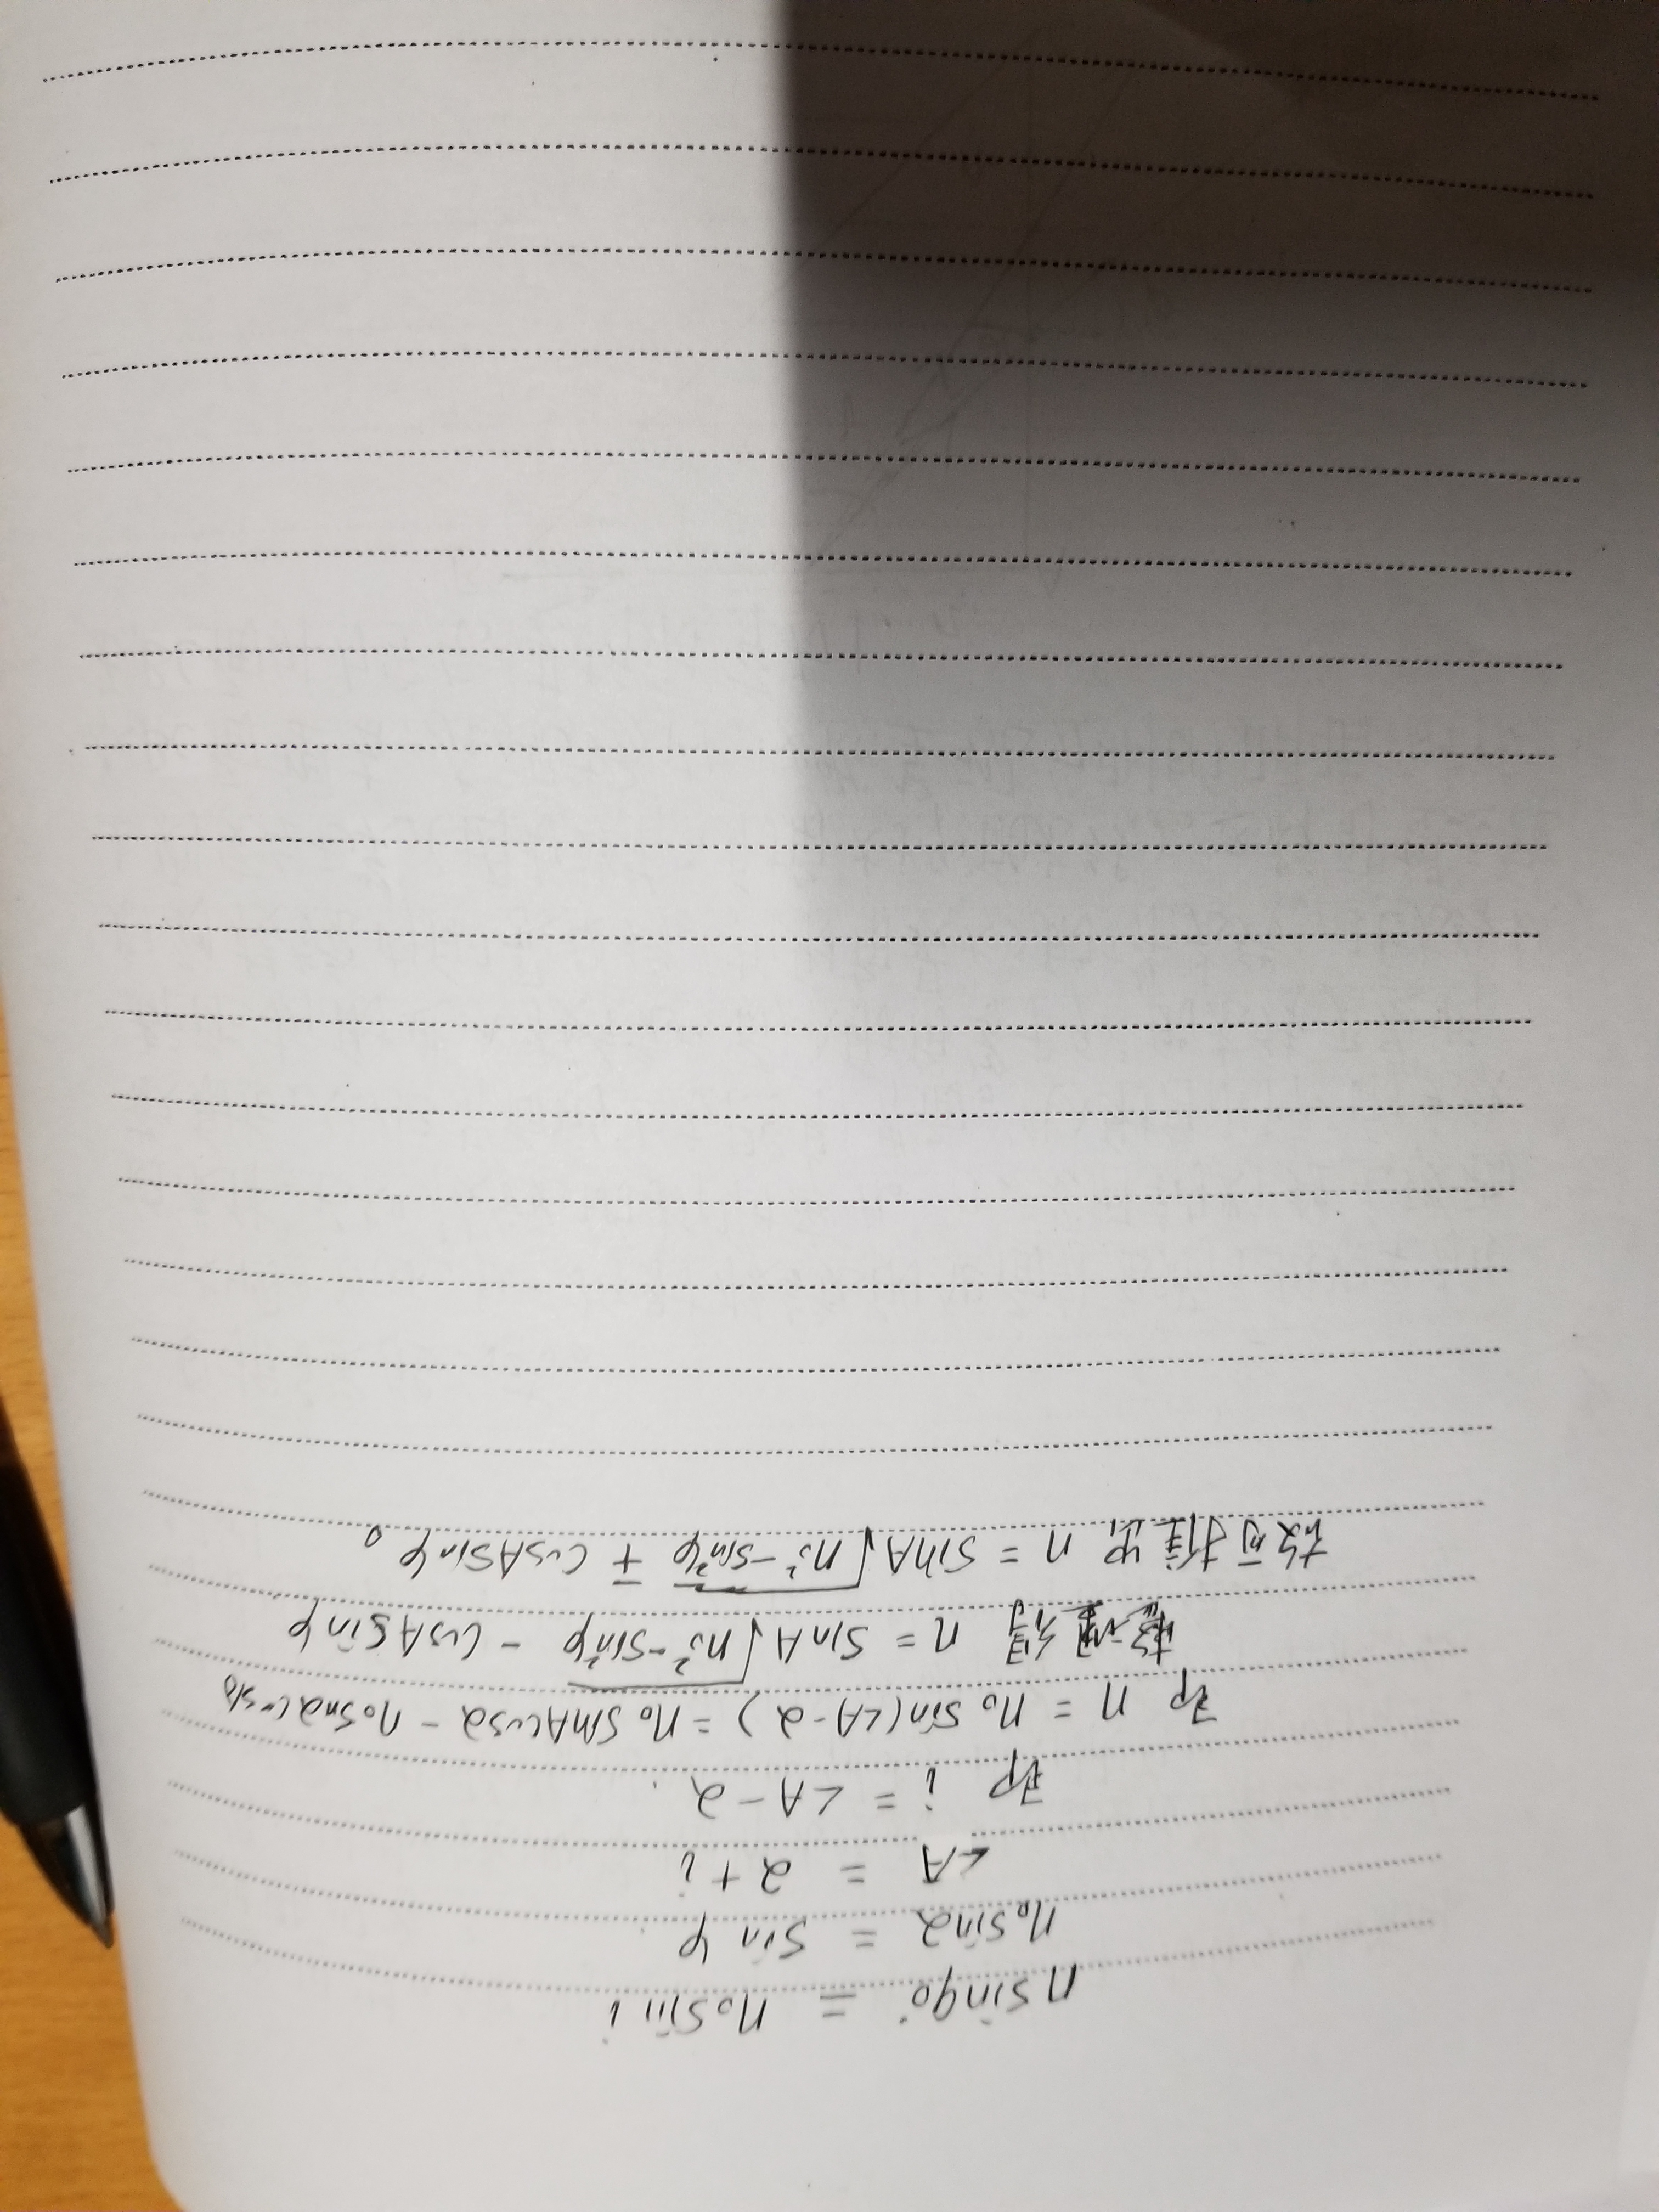 n sin90° = n₀ sin i
n₀ sinα = sin φ.
∠A = α + i
即 i = ∠A - α.
即 n = n₀ sin(∠A-α) = n₀ sinA cosα - n₀ sinα cosA
得 n = sinA√(n₀²-sin²φ) - cosA sinφ
故可推出 n = sinA√(n₀²-sin²φ) ∓ cosA sinφ。